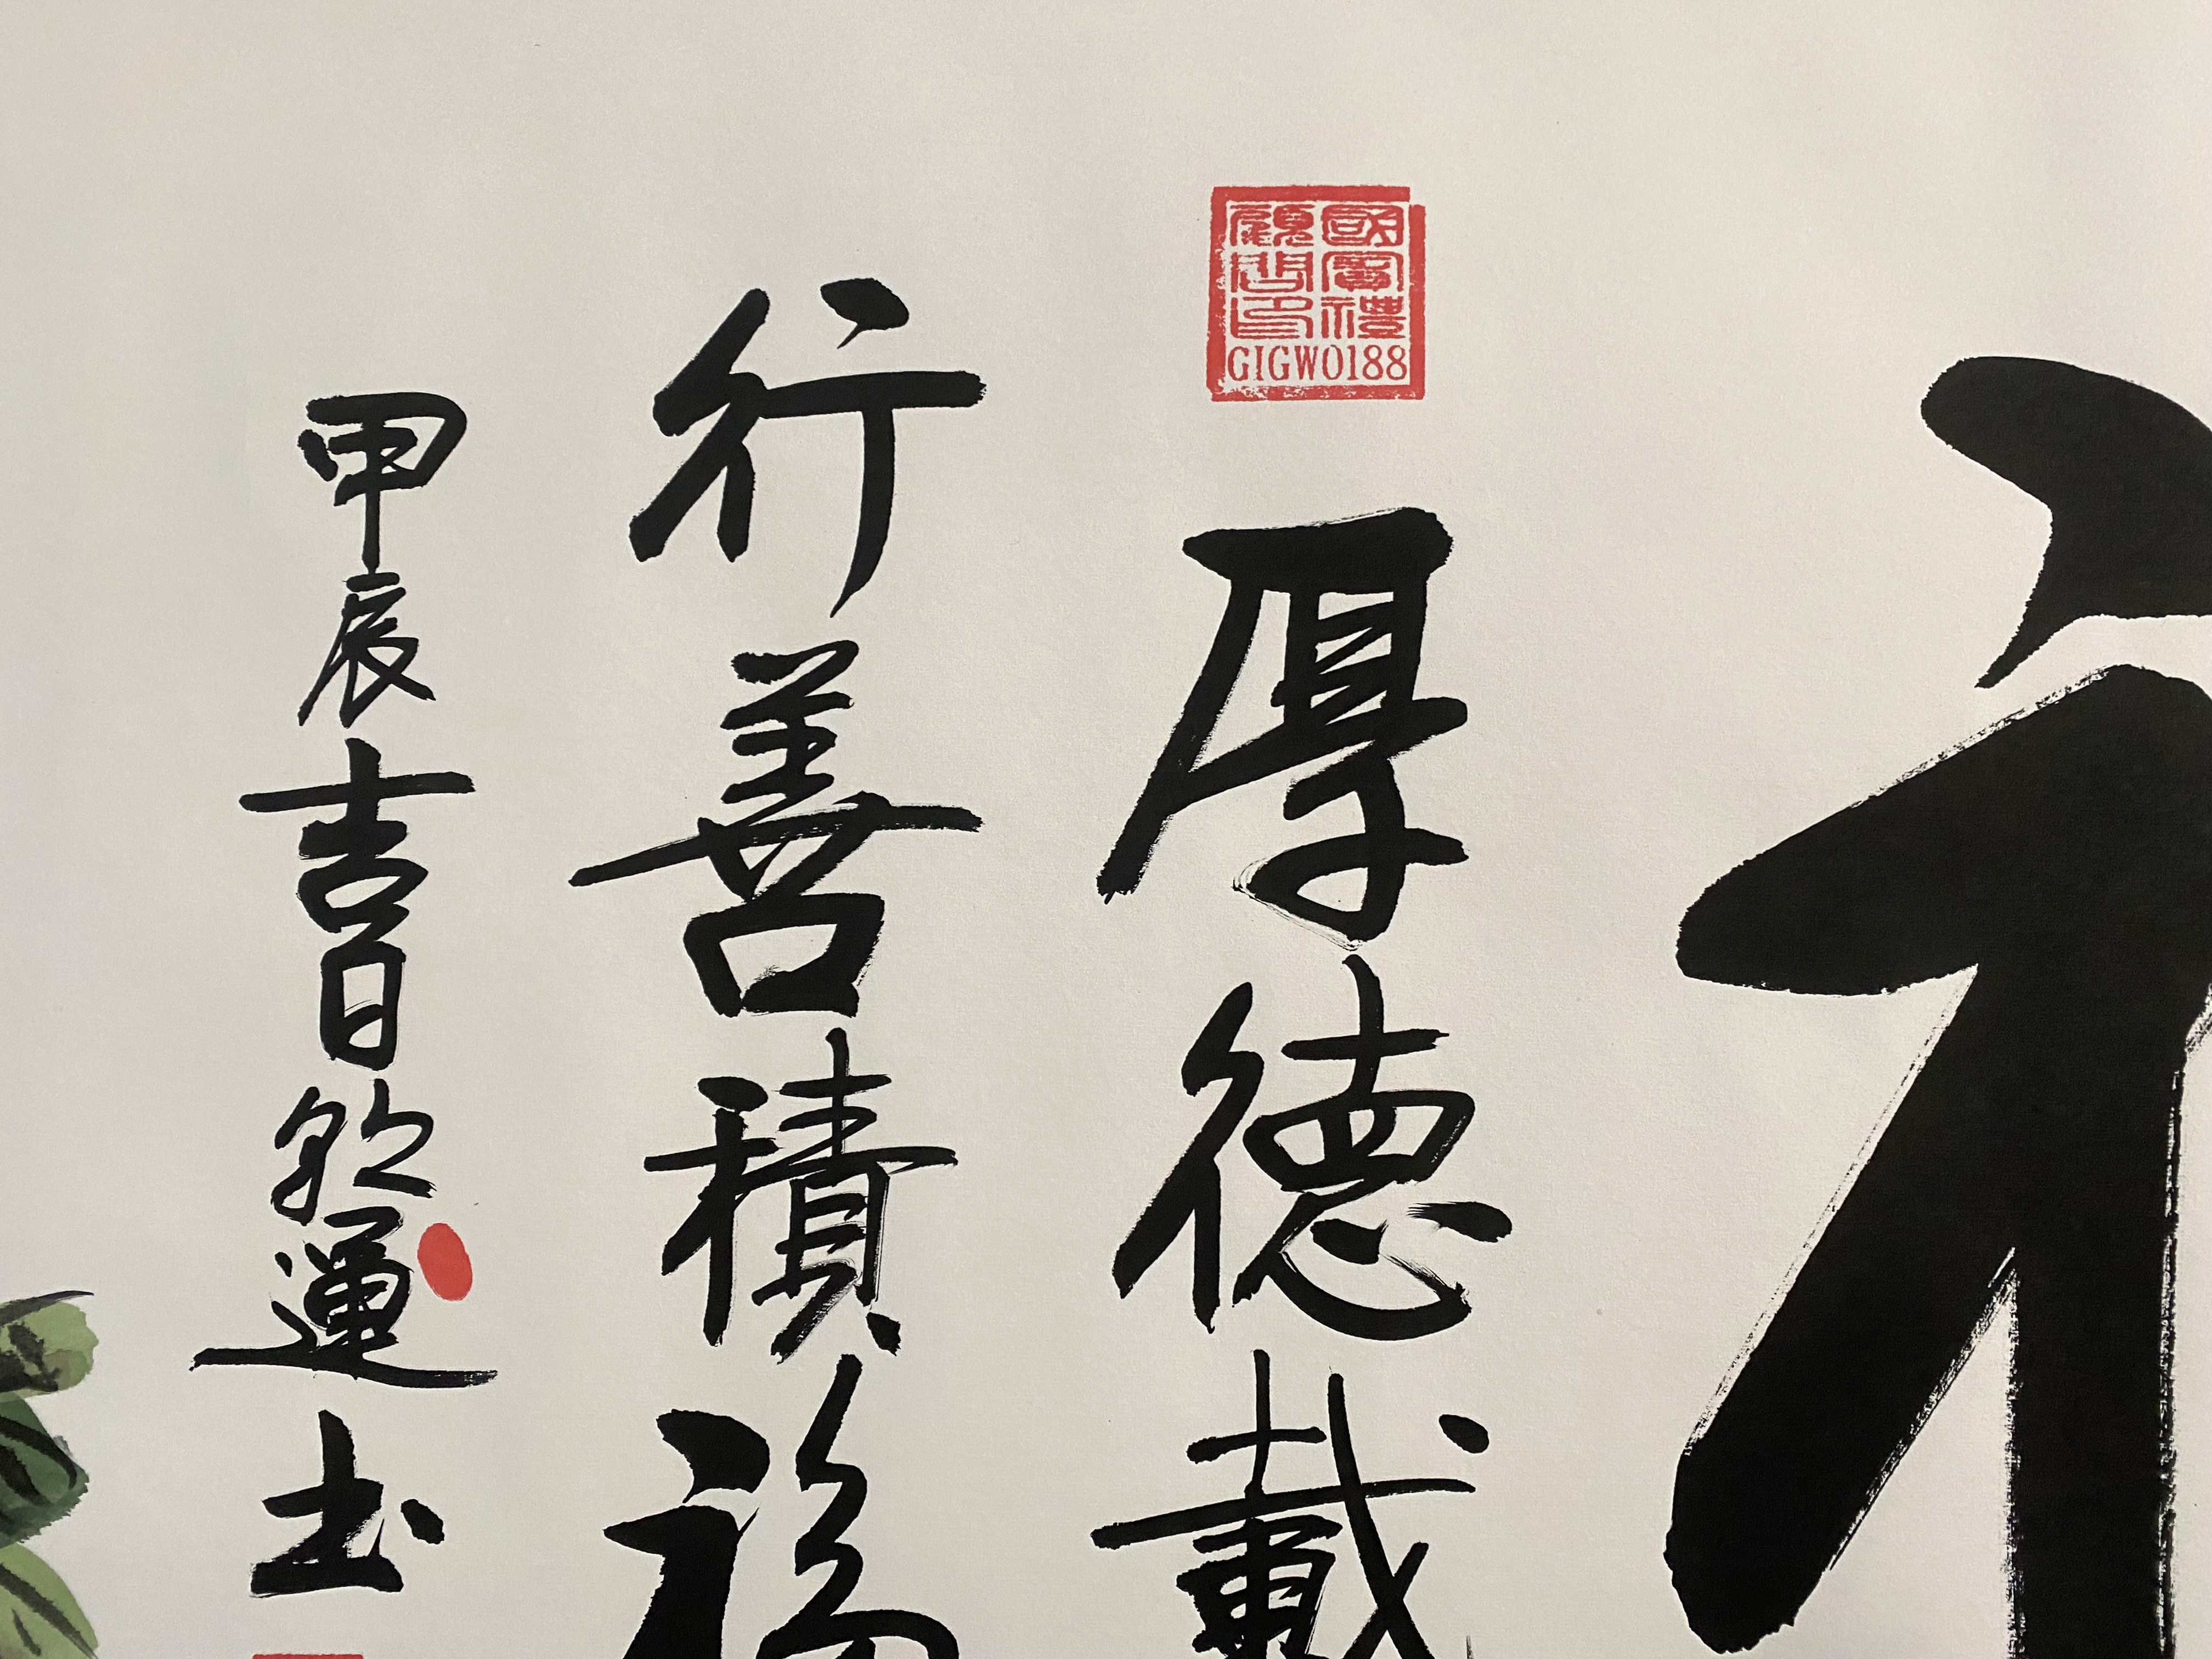 國賓禮
顧問印
GIGW0188
厚德載
行善積福
甲辰吉日
運書